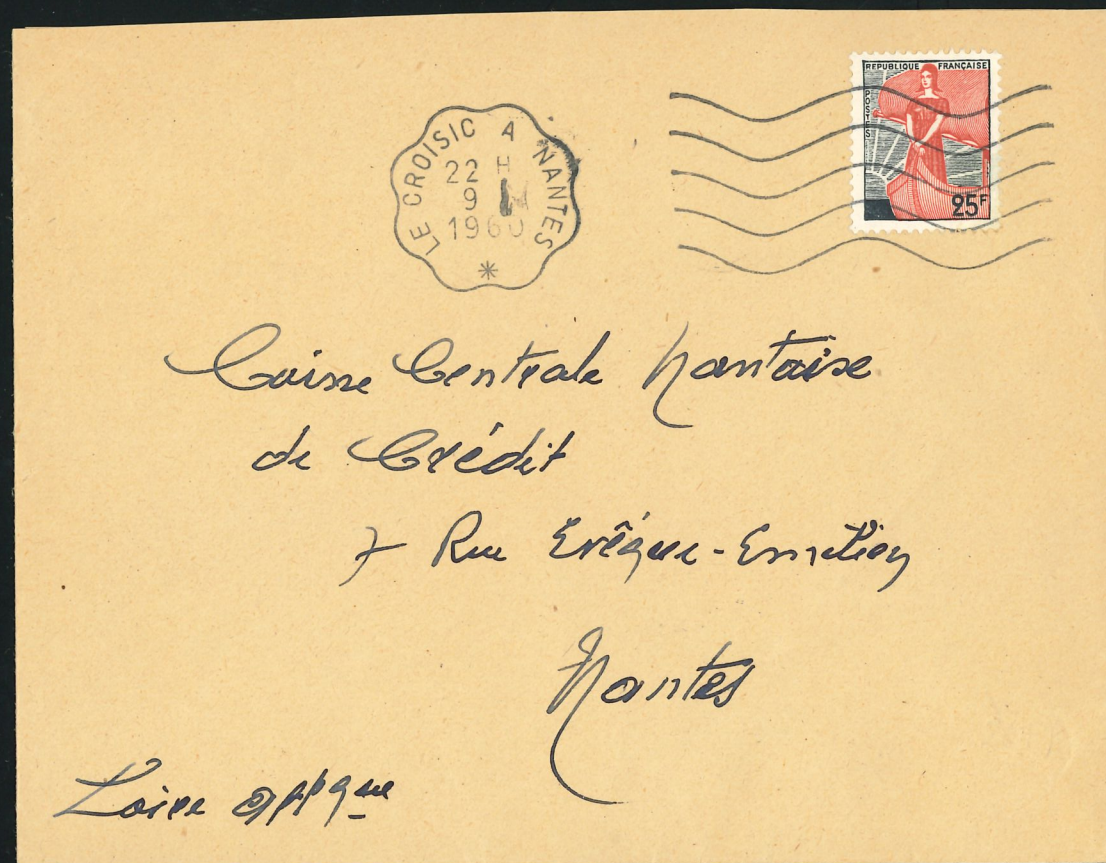 LE CROISIC A NANTES
22 H
9
1960
REPUBLIQUE FRANÇAISE
POSTES
25F
Caisse Centrale Nantaise
de Crédit
7 Rue Evêque-Emilien
Nantes
Loire